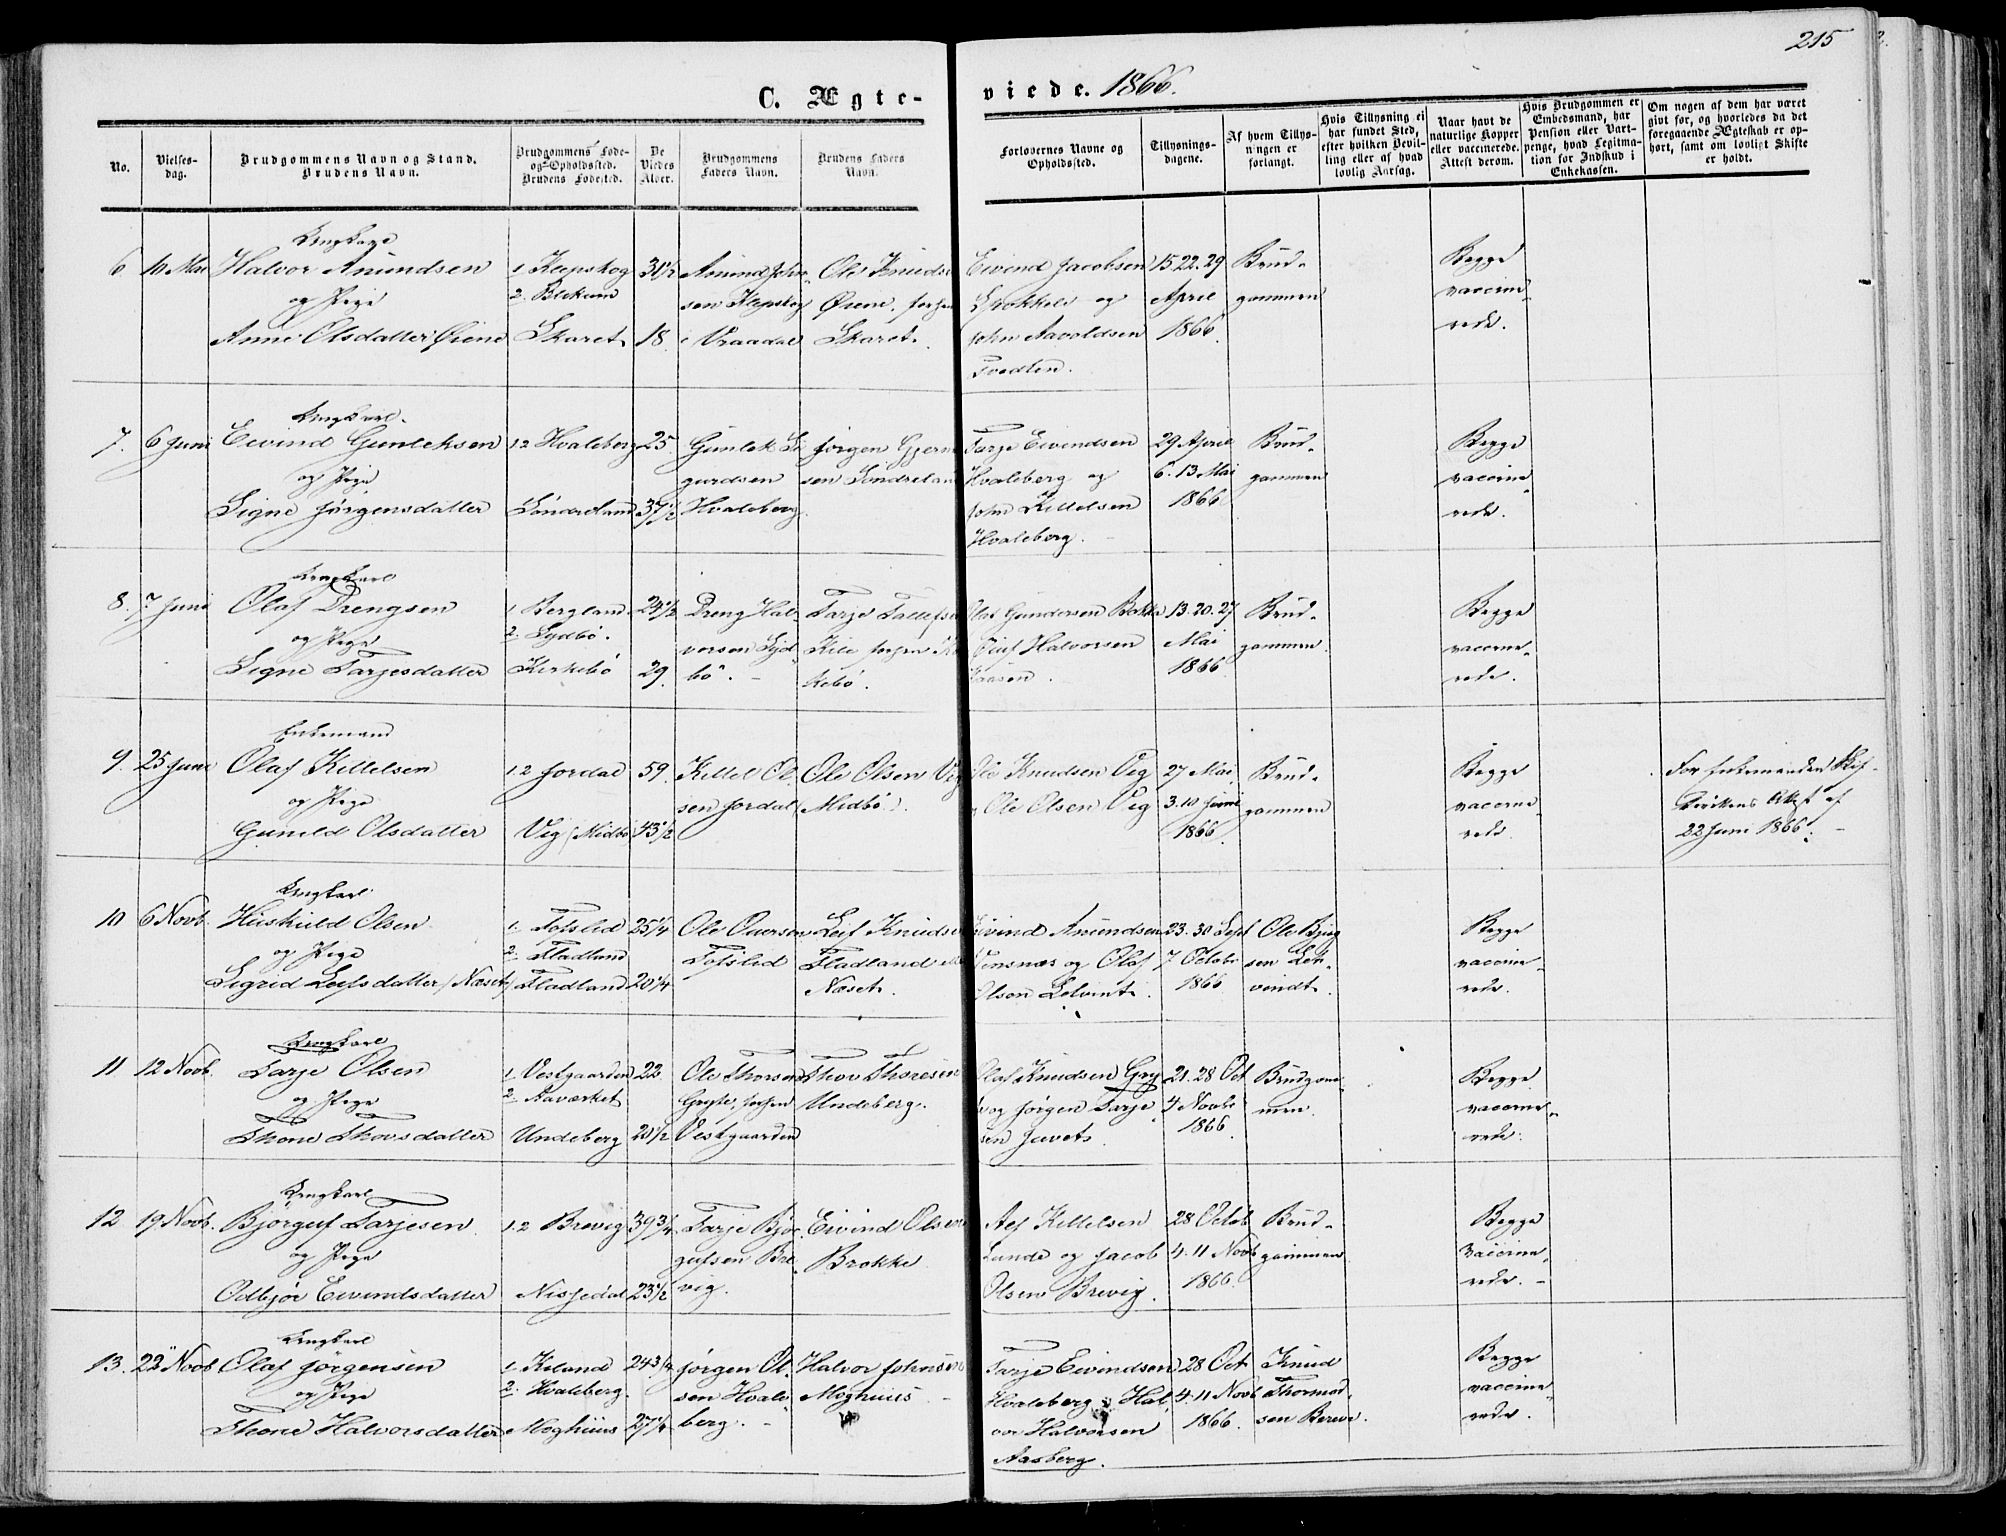 215
C. Ægte-
viede. 1866.
No.
Vielses-
dag.
Brudgommens Navn og Stand.
Brudens Navn.
Brudgommens Føde-
og Opholdssted.
Brudens Fødested.
De
Viedes
Alder.
Brudgommens
Faders Navn.
Brudens Faders
Navn.
Forlovernes Navne og
Opholdssted.
Tillysnings-
dagene.
Af hvem Tillys-
ningen er
forlangt.
Hvis Tillysning ei
har fundet Sted,
efter hvilken Bevil-
ling eller af hvad
lovlig Aarsag.
Naar havt de
naturlige Kopper
eller vaccinerede.
Attest derom.
Hvis Brudgommen er
Embedsmand, har
Pension eller Vart-
penge, hvad Legitma-
tion for Indskud i
Enkekassen.
Om nogen af dem har været
givt for, og hvorledes da det
foregaaende Ægteskab er op-
hørt, samt om lovligt Skifte
er holdt.
6
10 Mai
Ungkarl
Halvor Anundsen
og Pige
Anne Olsdatter Øiene
1. Klepskog
2. Blekum
Skaret
31 1/2
18
Anund Joh-
sen Klepskog
i Vraadal
Ole Knuds
Øiene, forhen
Skaret.
Eivind Jacobsen
og
John Aavoldsen
Tvedten.
15. 22. 29
April
1866
Brud-
gommen
Begge
vaccine-
rede.
7.
6 Juni
Ungkarl
Eivind Gunleksen
og Pige
Signe Jörgensdatter
1.2 Hvaleberg
Söndreland
25.
37 1/2
Gunlek Si
gurdsen
Hvaleberg.
Jörgen Gjerm
sen Söndreland
Tarje Eivindsen
Hvaleberg og
John Kittelsen
Hvaleberg.
29 April
6. 13 Mai
1866
Brud-
gommen
Begge
vaccine-
rede.
8.
7 Juni
Ungkarl
Olaf Drengsen
og Pige
Signe Tarjesdatter
1. Bergland
2. Sydbö.
Kirkebö
24 1/2
29.
Dreng Hal-
vorsen Syd-
bö.
Tarje Tallefsen
Kile forhen Kir
kebö.
Olaf Gundersen Bakke
Halvorsen
13. 20. 27
Mai
1866
Brud-
gommen
Begge
vaccine-
rede.
9.
25 Juni
Enkemand
Olaf Kittelsen
og Pige
Gunild Olsdatter
1.2 Jordal
Vig / Midbö
59.
43 1/2
Kittel Ol-
sen Jordal
Ole Olsen Vig
(Midbö).
Ole Knudsen Vig
og Ole Olsen Vig
27 Mai
3. 10 Juni
1866
Brud-
gommen
Begge
vaccine-
rede.
For Enkemanden Skif-
Attest af
22 Juni 1866.
10
6 Novb.
Ungkarl
Huskuld Olsen
og Pige
Sigrid Leifsdatter / Næset
1. Tofslid
2. Fladland
Fladland
25 1/4
20 1/4
Ole
Tofslid
Leif Knudsen
Fladland
Næset.
Eivind Anundsen
og Olaf
Olsen
23. 30 Sept
7 Octobr
1866
Ole Bjørg
sen
Begge
vaccine-
rede.
11
12 Novb.
Ungkarl
Tarje Olsen
og Pige
Thone Thorsdatter
1. Vestgaarden
2. Naværket
Undeberg
22
21 1/2
Ole Thorsen
forhen
Vestgaarden
Thor Thoresen
Undeberg.
Olaf Knudsen
og Jörgen Tarje
sen
21. 28 Oct
4 Novbr
1866
Brudgom-
men.
Begge
vaccine-
rede.
12
19 Novb.
Ungkarl
Björguf Tarjesen
og Pige
Odbjör Eivindsdatter
1.2 Brevig
Nissedal
39 3/4
23 1/2
Tarje Björ-
gufsen Bre-
vig.
Eivind Olsen
Brokke
Alf Kittelsen
Lunde og Jacob
Olsen Brevig.
28 Octob
4. 11 Novb
1866
Brud-
gommen
Begge
vaccine-
rede.
13.
22 Novb
Ungkarl
Olaf Jörgensen
og Pige
Thone Halvorsdatter
1. Kiland
2. Hvaleberg.
Moghuus
24 3/4
27 1/4
Jörgen Ol-
sen Hvale-
berg.
Halvor Johnsen
Moghuus
Tarje Eivindsen
Hvaleberg og Hal-
vor Halvorsen
Aasberg.
28 Oct
4. 11 Novb
1866.
Knud
Thormod-
sen
Begge
vaccine-
rede.